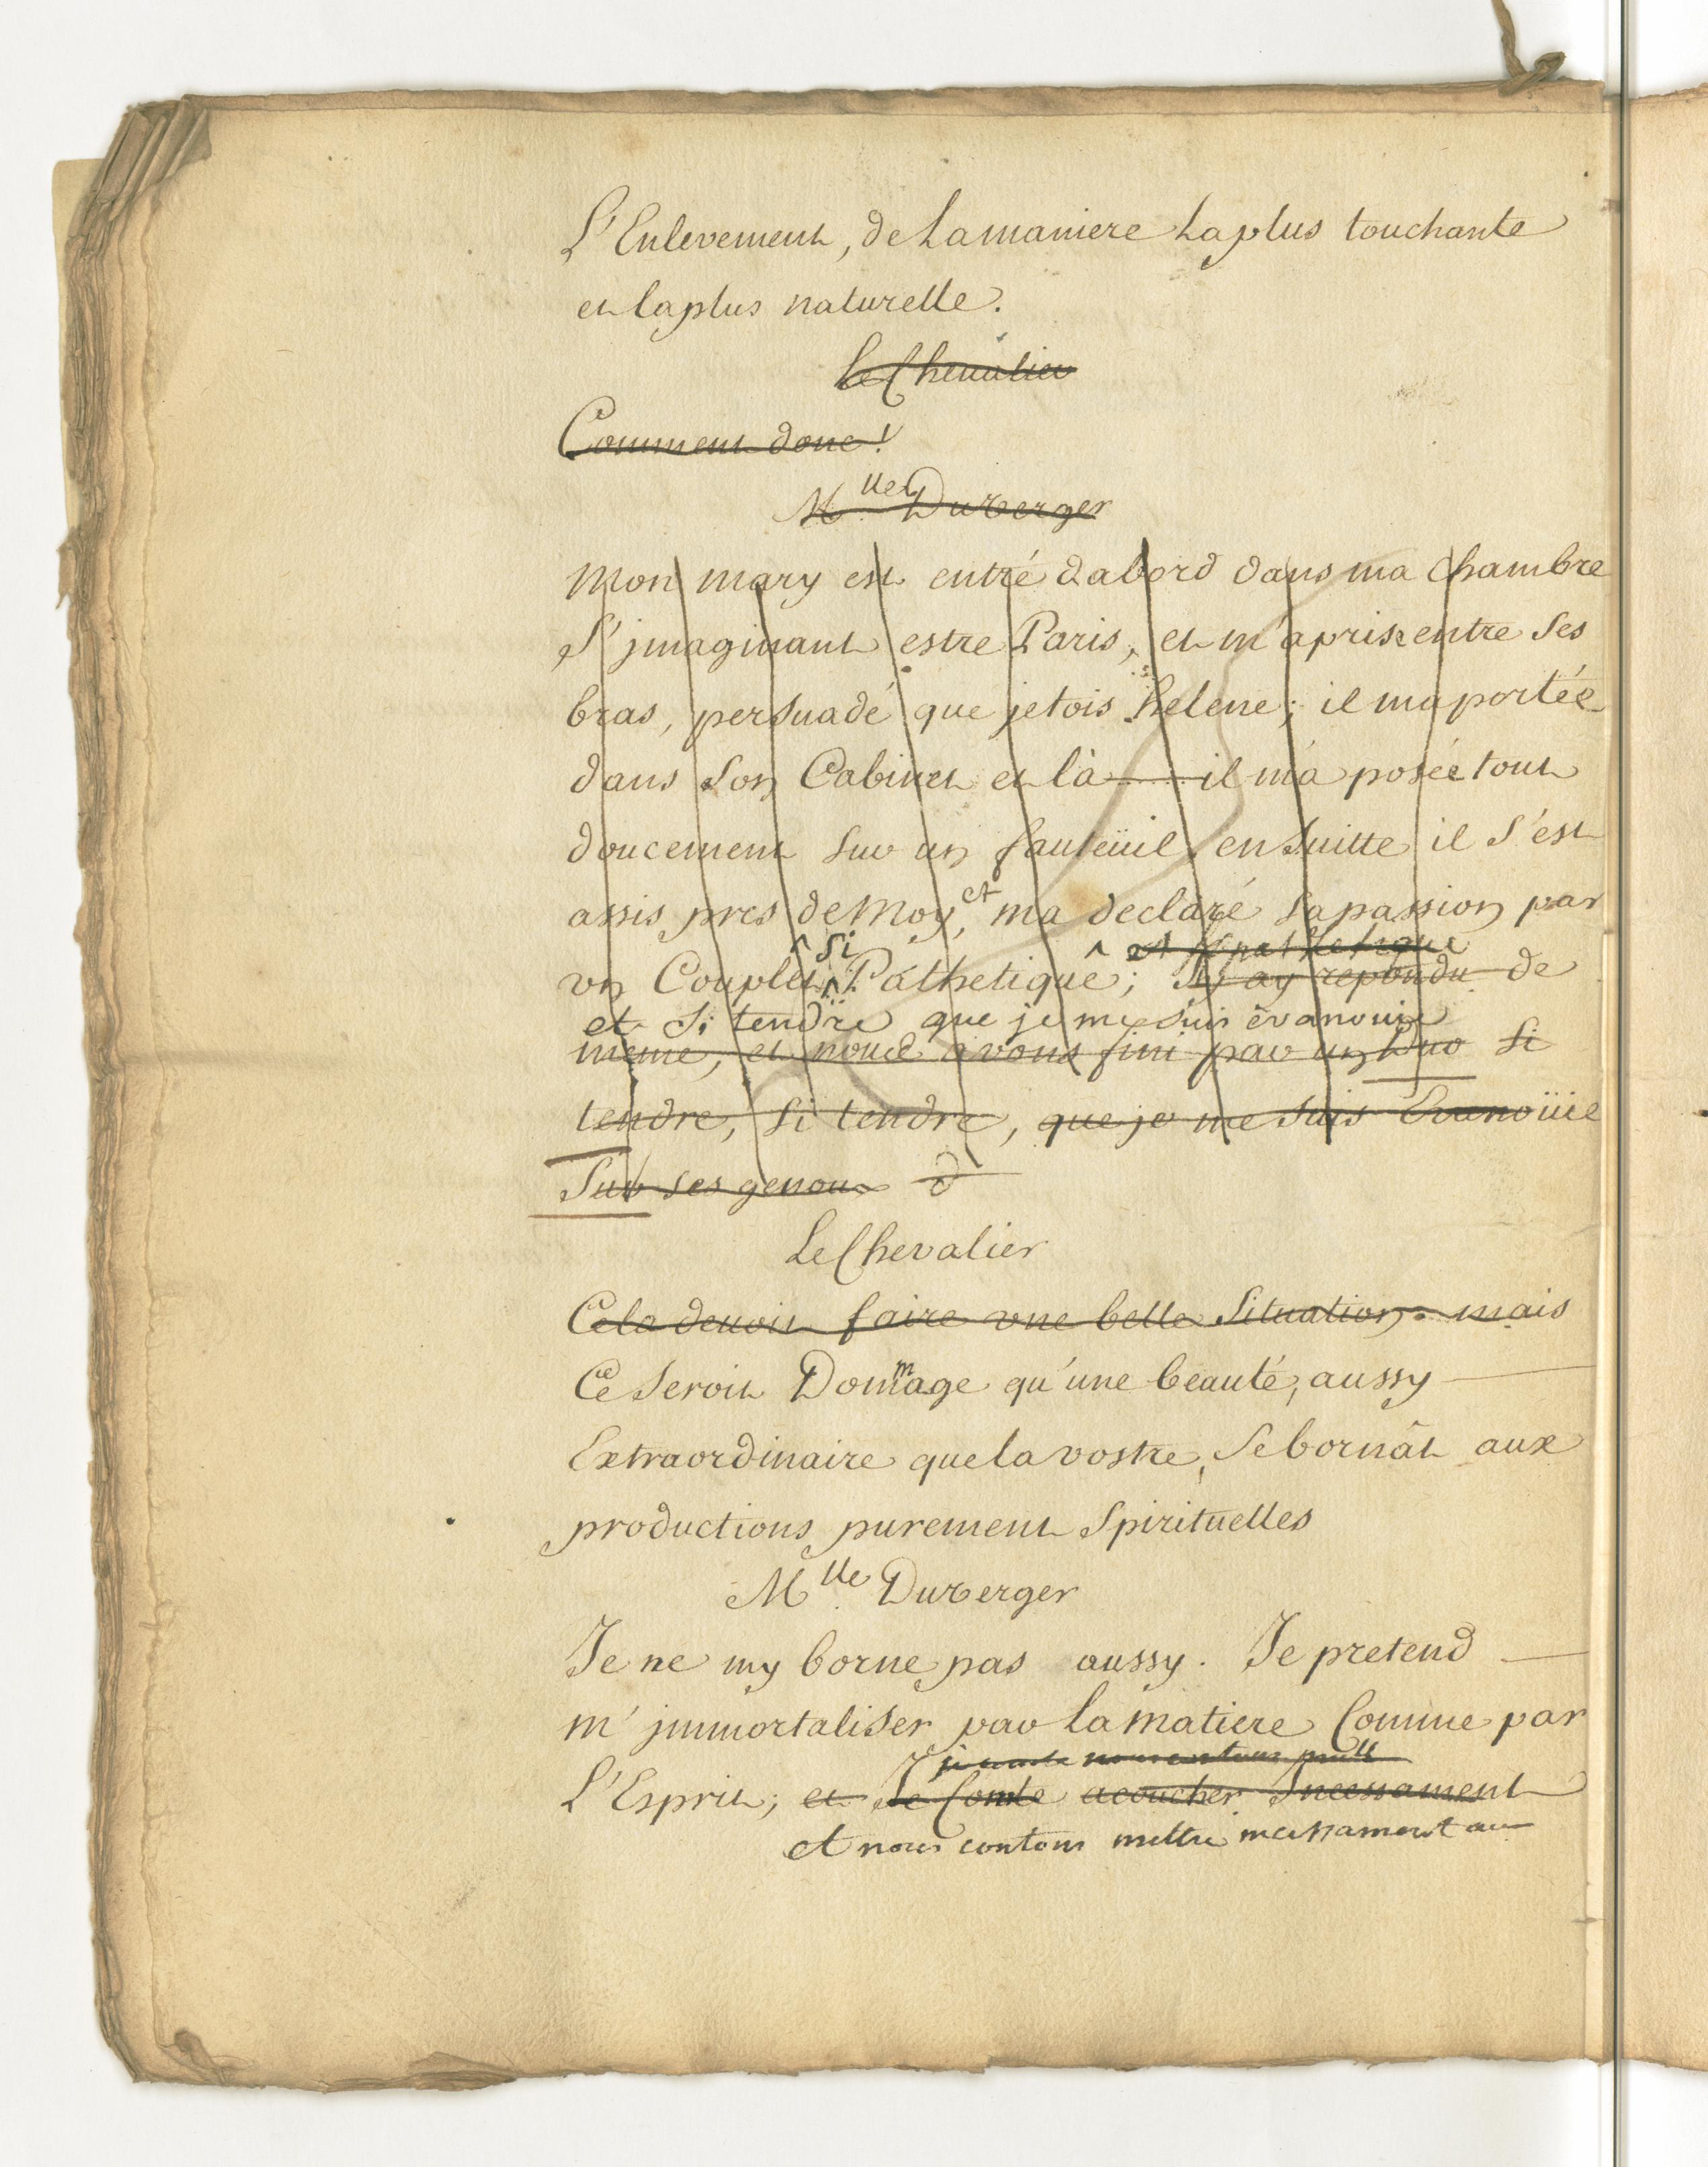 L'Enlevement, de La maniere La plus touchante
et la plus naturelle.
Le Chevalier
Comment donc!
Mlle Duverger
Mon mary est entré dabord dans ma Chambre
S'jmaginant estre Paris, et m'a prise entre Ses
bras, persuadé que jetois helene; il ma portée
dans Son Cabinet et là il m'a posée tout
doucement Sur un fauteüil, ensuitte il S'est
assis pres de Moy, et ma declaré Sa passion par
si et si pathetique
un Couplet Pathetique; J'y ay repondu de
et si tendre que je me suis évanouie
meme, et nous avons fini par un Duo Si
tendre, Si tendre, que je me suis Evanoüie
Sur ses genoux
Le Chevalier
Cela devoit faire une belle Situation. mais
Ce Seroit Dommage qu'une beauté, aussy
Extraordinaire que la vostre, Se bornât aux
productions purement Spirituelles
Mlle Duverger
Je ne my borne pas aussy. Je pretend
m'jmmortaliser par La Matiere Comme par
nous contons
L'Esprit; et Je Comte acoucher Incessament
et nous contons mettre incessament au